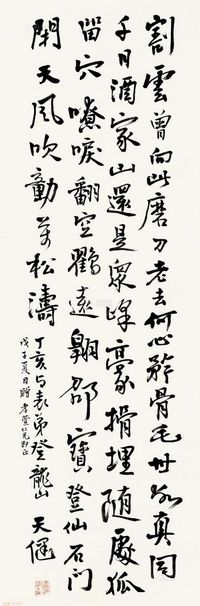 割雲曾向此磨刀老去何心矜骨毛世味真同
千日酒家山還是眾峰豪捐埋隨處狐
留穴嘹唳翻空鸛遠翱郤寶登仙石門
閑天風吹動萬松濤 丁亥与表弟登龍山 天健
戊子夏日贈 仁兄即正